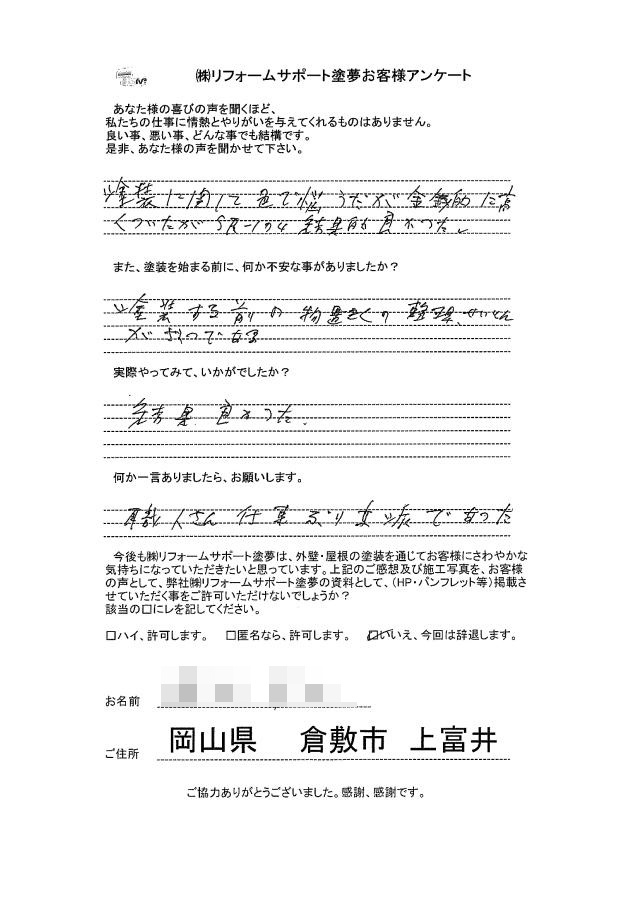 ㈱リフォームサポート塗夢お客様アンケート
あなた様の喜びの声を聞くほど、
私たちの仕事に情熱とやりがいを与えてくれるものはありません。
良い事、悪い事、どんな事でも結構です。
是非、あなた様の声を聞かせて下さい。
塗装に関して色で悩うだが金銭的に高
くついたが 結果的 良かった。
また、塗装を始まる前に、何か不安な事がありましたか？
塗装する前の物置きの整理
実際やってみて、いかがでしたか？
結果 良かった.
何か一言ありましたら、お願いします。
職人さん 仕事ぶり 立派であった
今後も㈱リフォームサポート塗夢は、外壁・屋根の塗装を通じてお客様にさわやかな
気持ちになっていただきたいと思っています。上記のご感想及び施工写真を、お客様
の声として、弊社㈱リフォームサポート塗夢の資料として、（HP・パンフレット等）掲載さ
せていただく事をご許可いただけないでしょうか？
該当の口にレを記してください。
口ハイ、許可します。 口匿名なら、許可します。 口いいえ、今回は辞退します。
お名前
ご住所 岡山県 倉敷市 上富井
ご協力ありがとうございました。感謝、感謝です。